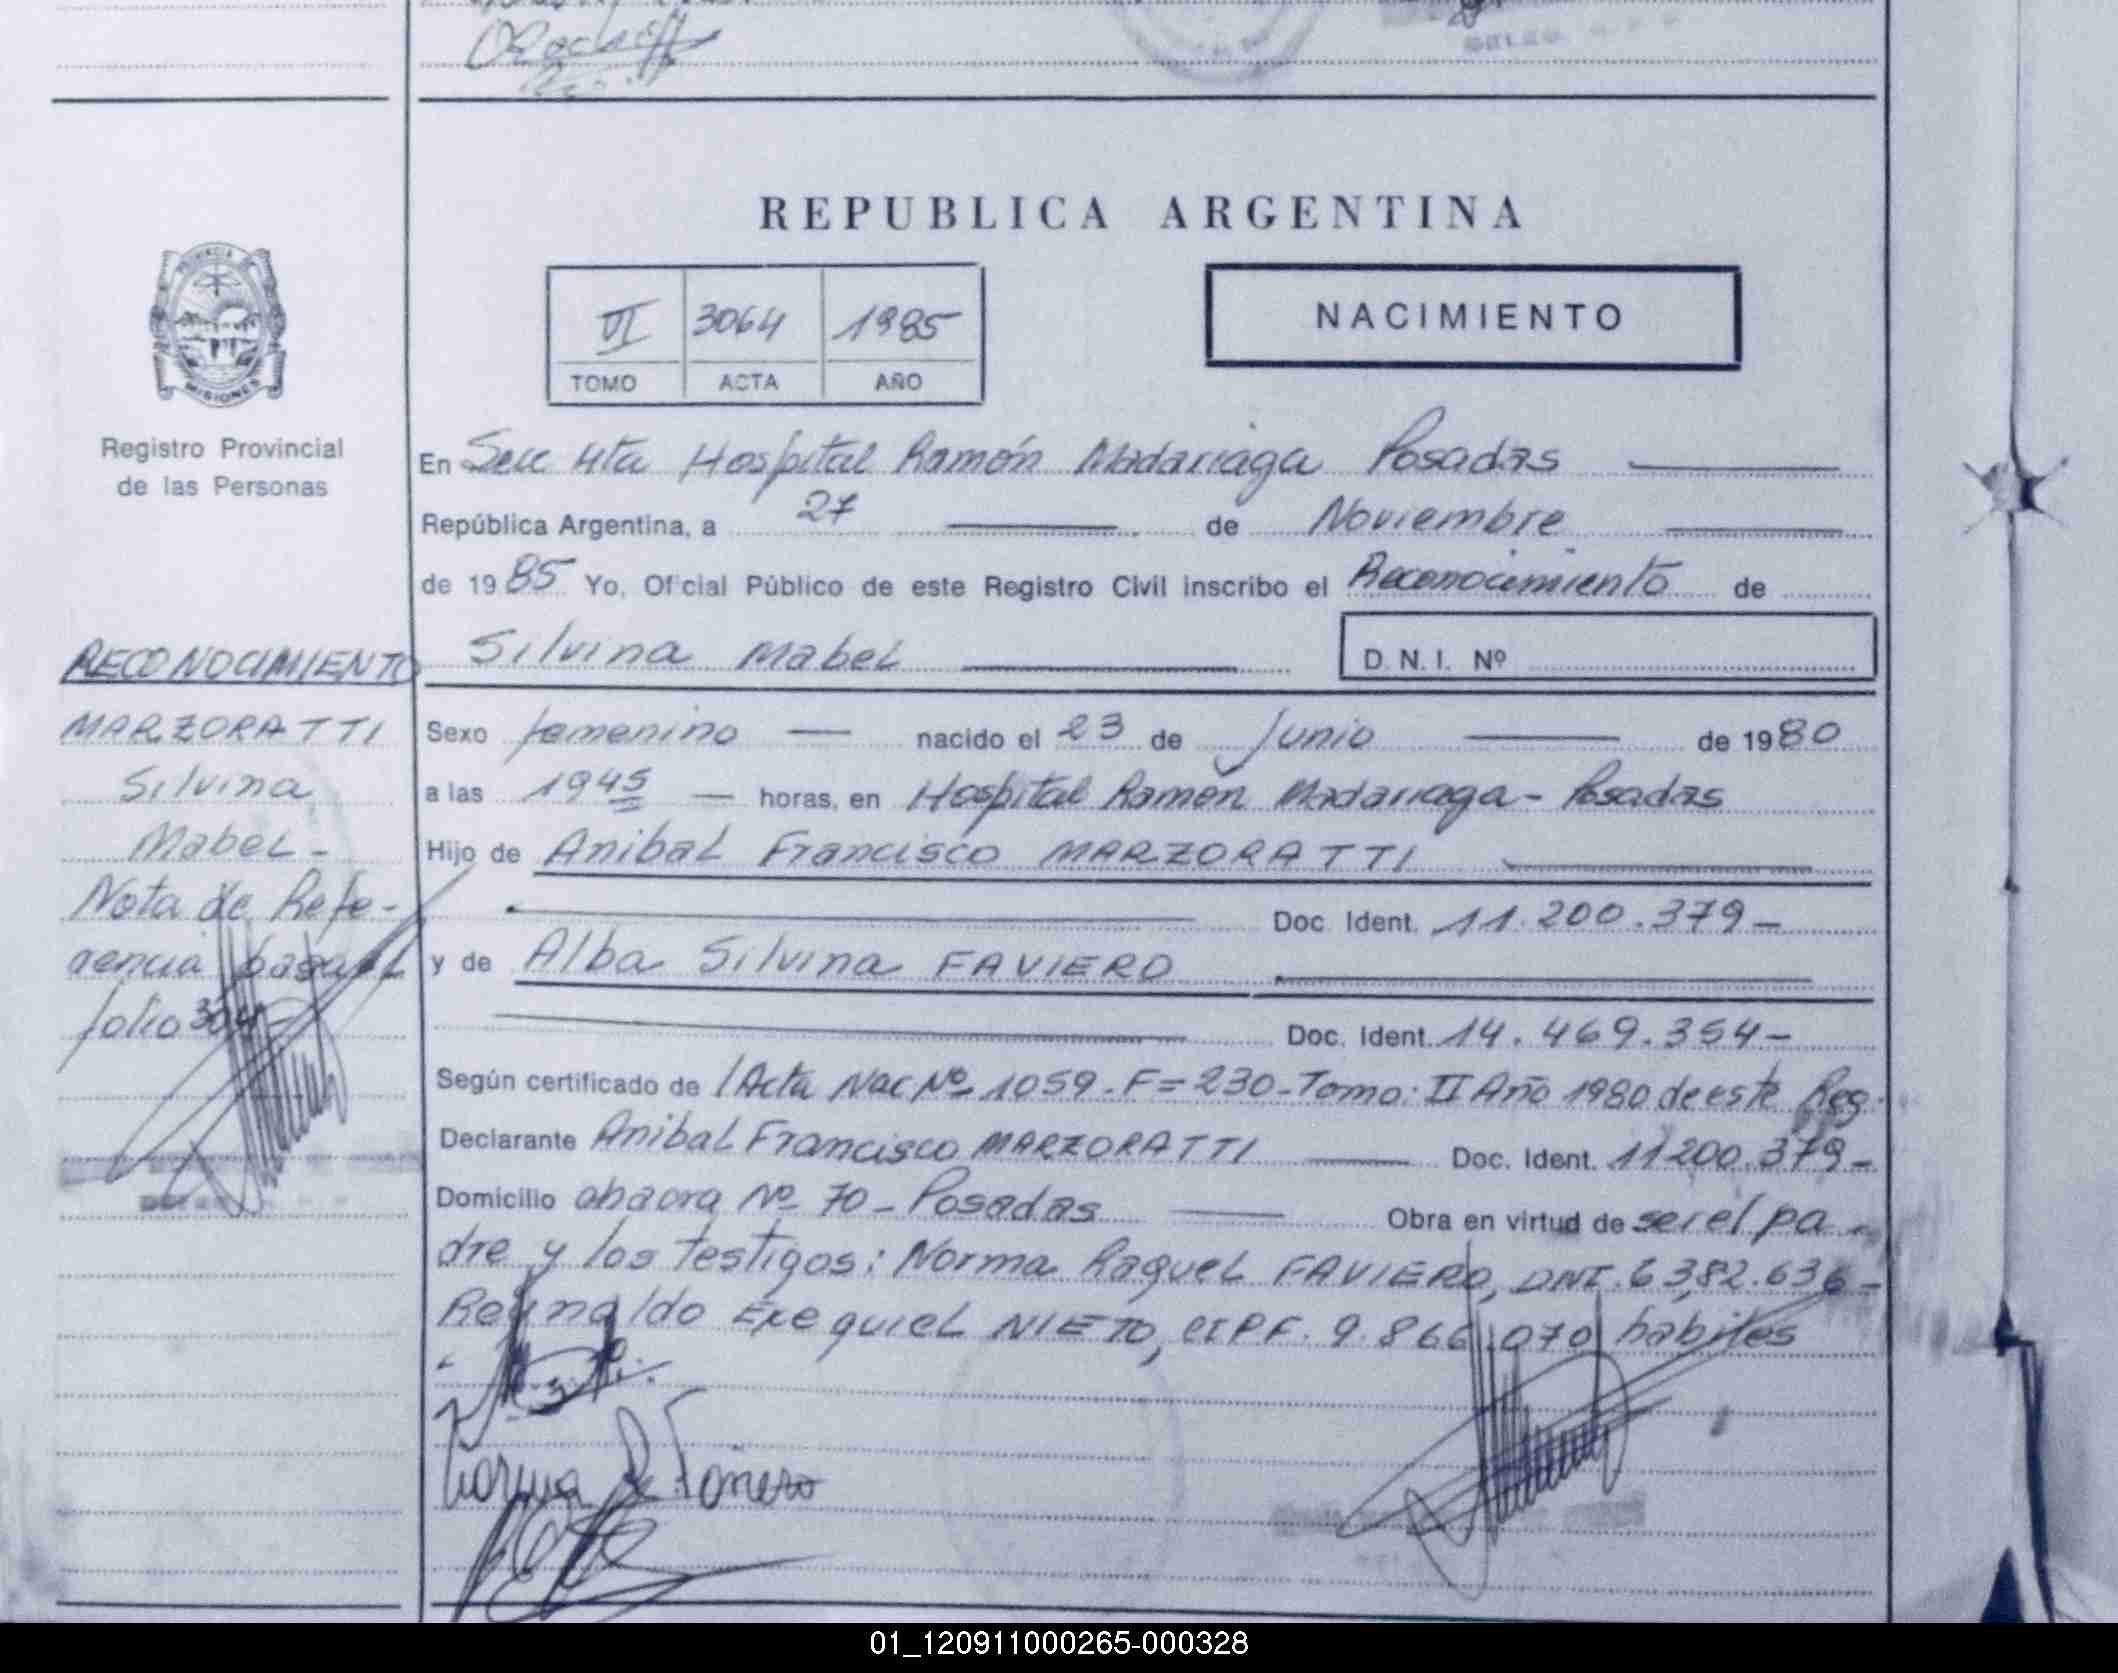 REPUBLICA ARGENTINA
PROVINCIA DE MISIONES
VI 3064 1985
TOMO ACTA AÑO
NACIMIENTO
Registro Provincial
de las Personas
En Secc 4ta Hospital Ramón Madariaga Posadas
República Argentina, a 27 de Noviembre
de 1985 Yo, Oficial Público de este Registro Civil inscribo el Reconocimiento de
Silvina Mabel D.N.I. Nº
RECONOCIMIENTO
MARZORATTI
Silvina
Mabel-
Nota de Refe-
rencia
folio
Sexo femenino nacido el 23 de Junio de 1980
a las 1945 horas, en Hospital Ramón Madariaga - Posadas
Hijo de Anibal Francisco MARZORATTI
Doc. Ident. 11.200.379-
y de Alba Silvina FAVIERO
Doc. Ident. 14.469.354-
Según certificado de Acta Nac Nº 1059 - F=230 - Tomo: II Año 1980 de este Reg.
Declarante Anibal Francisco MARZORATTI Doc. Ident. 11200.379-
Domicilio Nº 70 - Posadas Obra en virtud de ser el pa
dre y los testigos: Norma Raquel FAVIERO, DNI. 6.382.636-
Reynaldo Exequiel NIETO, CIPF. 9.866.070 habiles
Norma R.
01_120911000265-000328